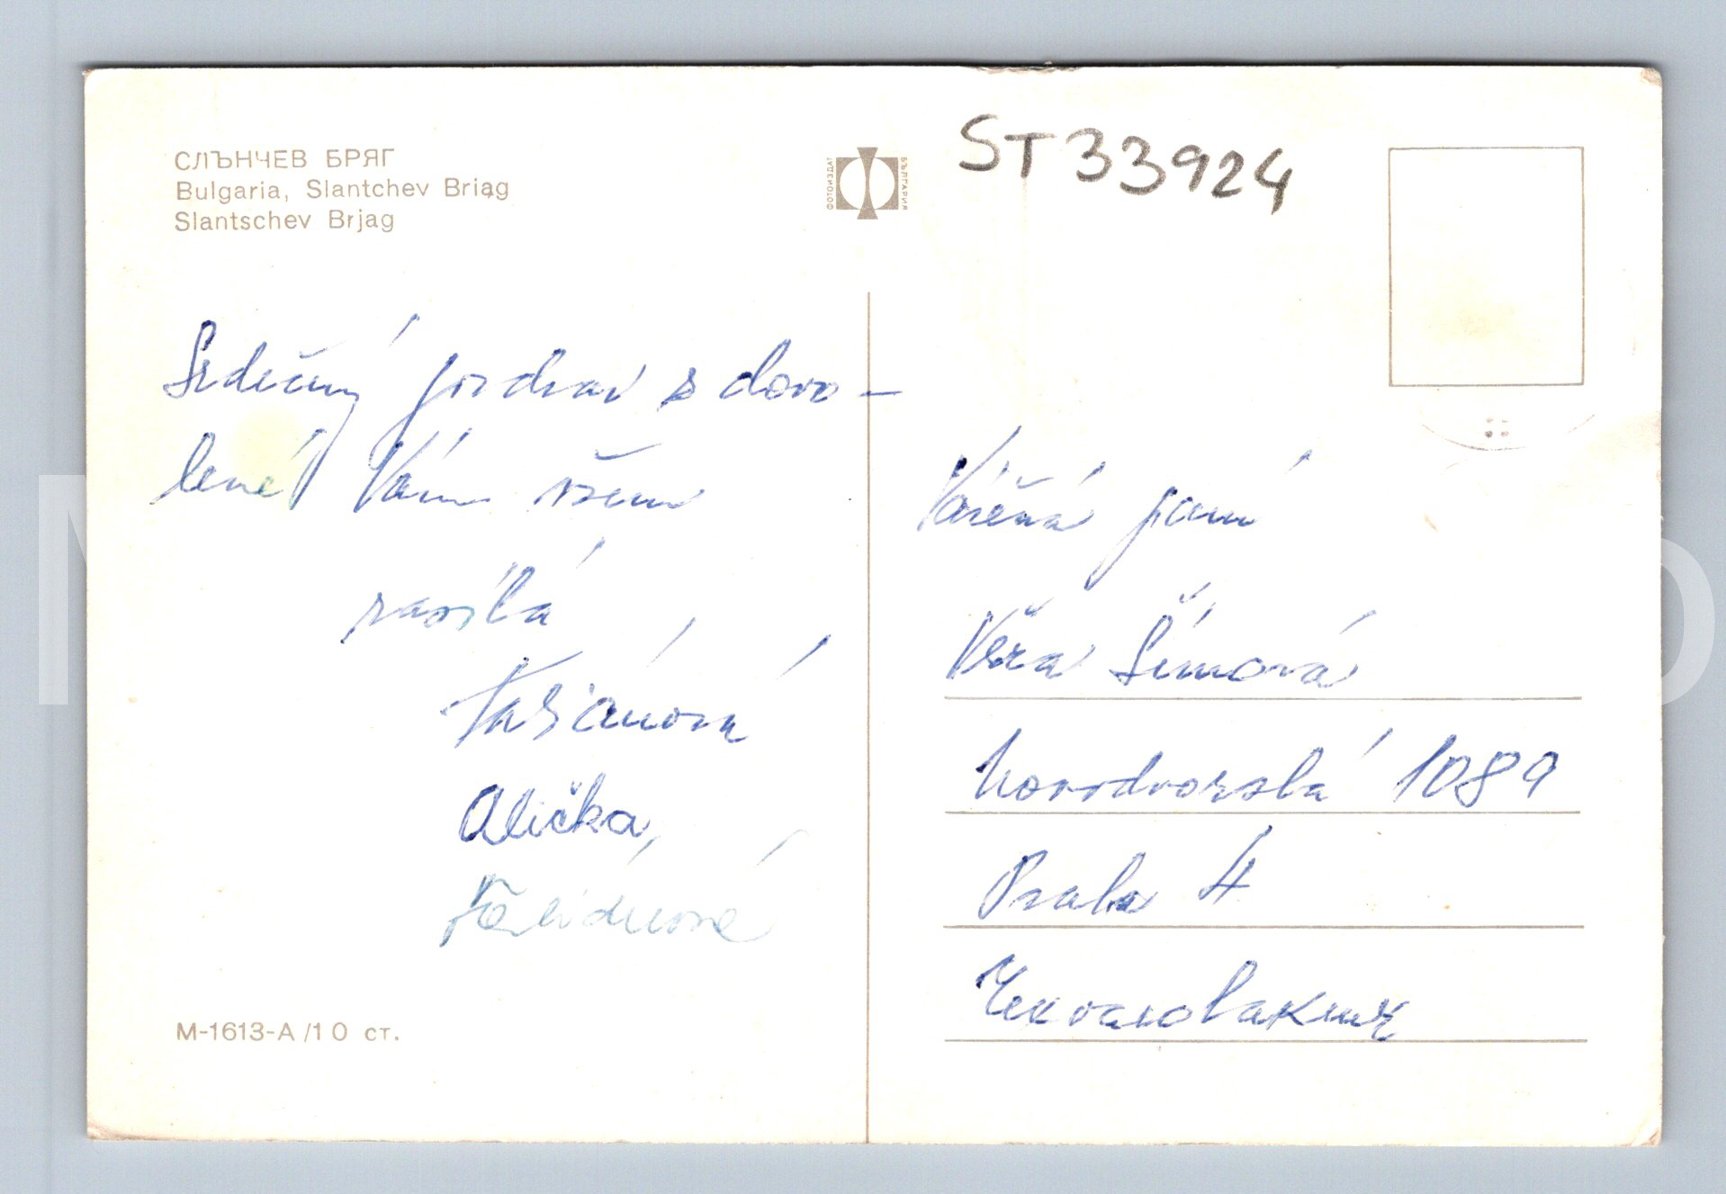 СЛЪНЧЕВ БРЯГ
Bulgaria, Slantchev Briag
Slantschev Brjag
ФОТОИЗДАТ
БЪЛГАРИЯ
ST 33924
Srdečný pozdrav z dovo-
lené Vám všem
zasílá
Alička,
M-1613-A/10 ст.
Vážená paní
Věra Šímová
Novodvorská 1089
Praha 4